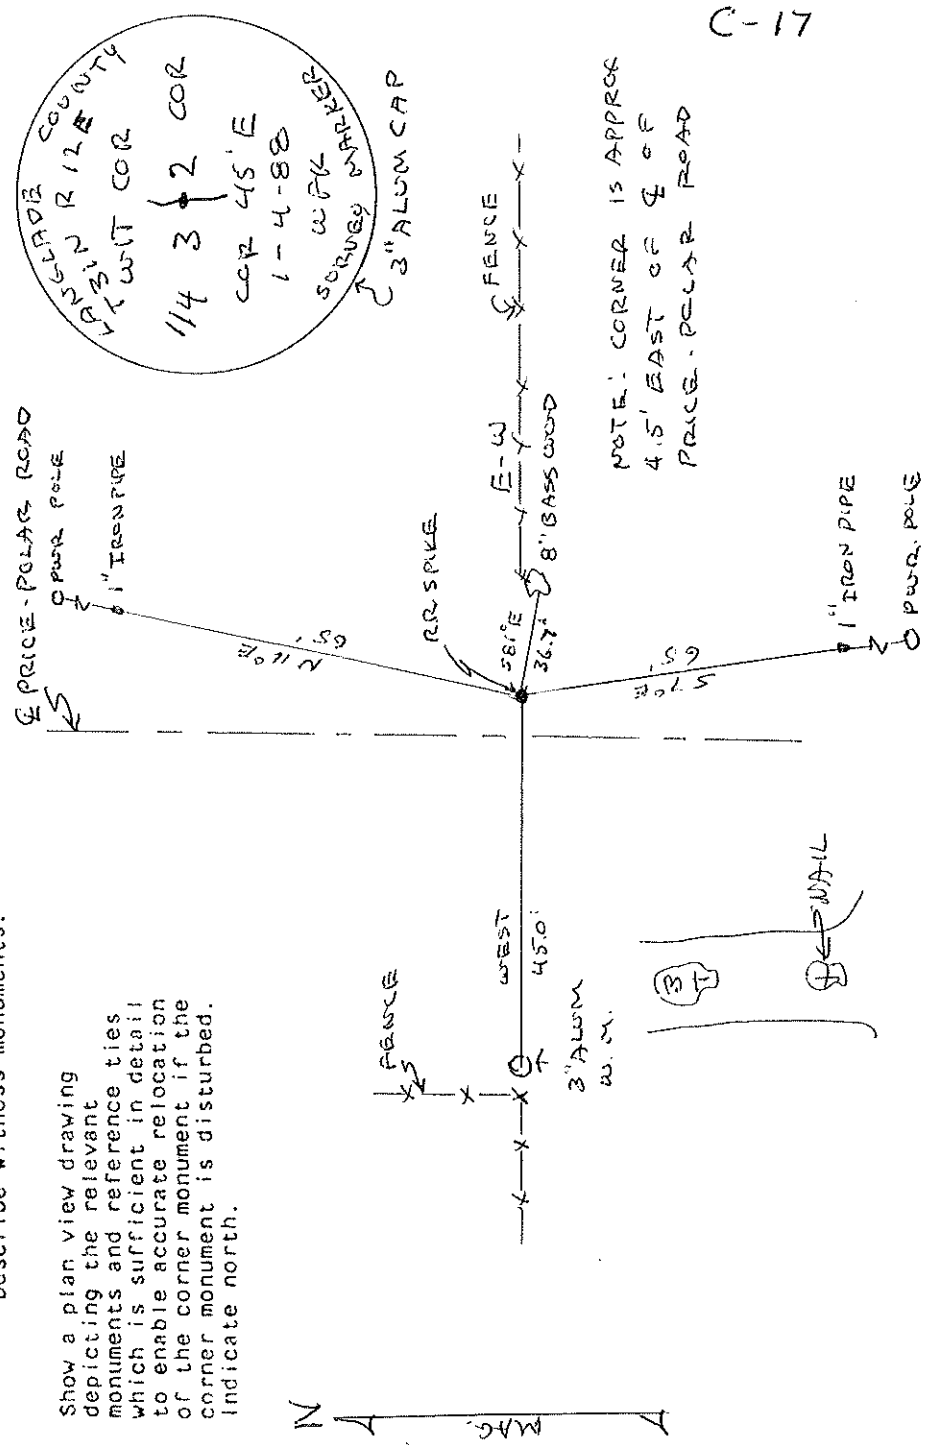 C-17
Describe witness monuments.
Show a plan view drawing
depicting the relevant
monuments and reference ties
which is sufficient in detail
to enable accurate relocation
of the corner monument if the
corner monument is disturbed.
Indicate north.
LANGLADE COUNTY
T31N R12E
WIT COR
1/4 3 2 COR
COR 45' E
1-4-88
WFK
SURVEY MARKER
3" ALUM CAP
℄ PRICE-POLAR ROAD
PWR POLE
1" IRON PIPE
N 11° E
65'
RR SPIKE
S81°E
36.7'
E-W
FENCE
8" BASSWOOD
NOTE: CORNER IS APPROX
4.5' EAST OF ℄ OF
PRICE-POLAR ROAD
65'
S 7° E
1" IRON PIPE
PWR. POLE
WEST
45.0'
FENCE
3" ALUM
W.M.
BT
NAIL
N
MAG.